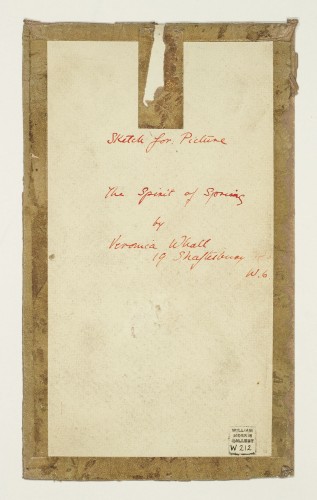 Sketch for Picture
The Spirit of Spring
by
Veronica Whall
19 Shaftesbury
W.6
WILLIAM
MORRIS
GALLERY
W 212